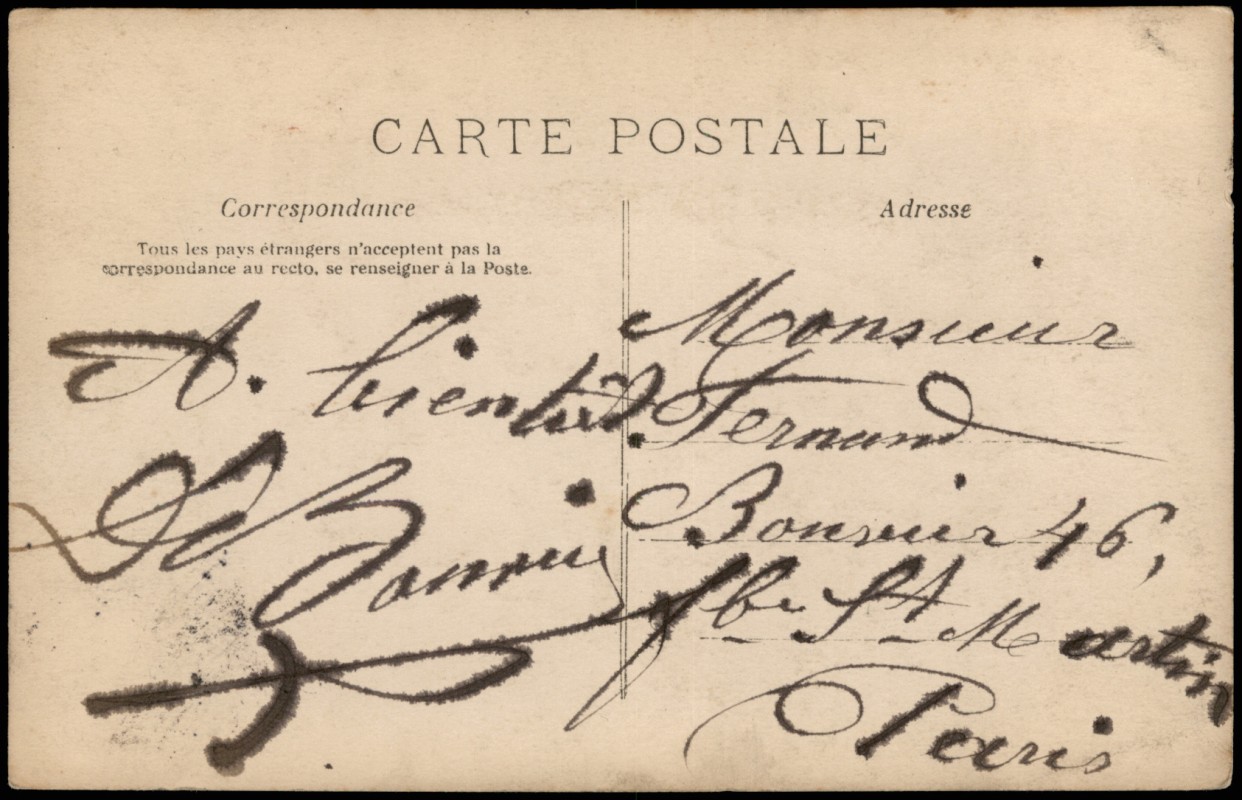 CARTE POSTALE
Correspondance
Tous les pays étrangers n'acceptent pas la
correspondance au recto, se renseigner à la Poste.
A. bientôt
Adresse
Monsieur
Fernand
46,
fbg St Martin
Paris